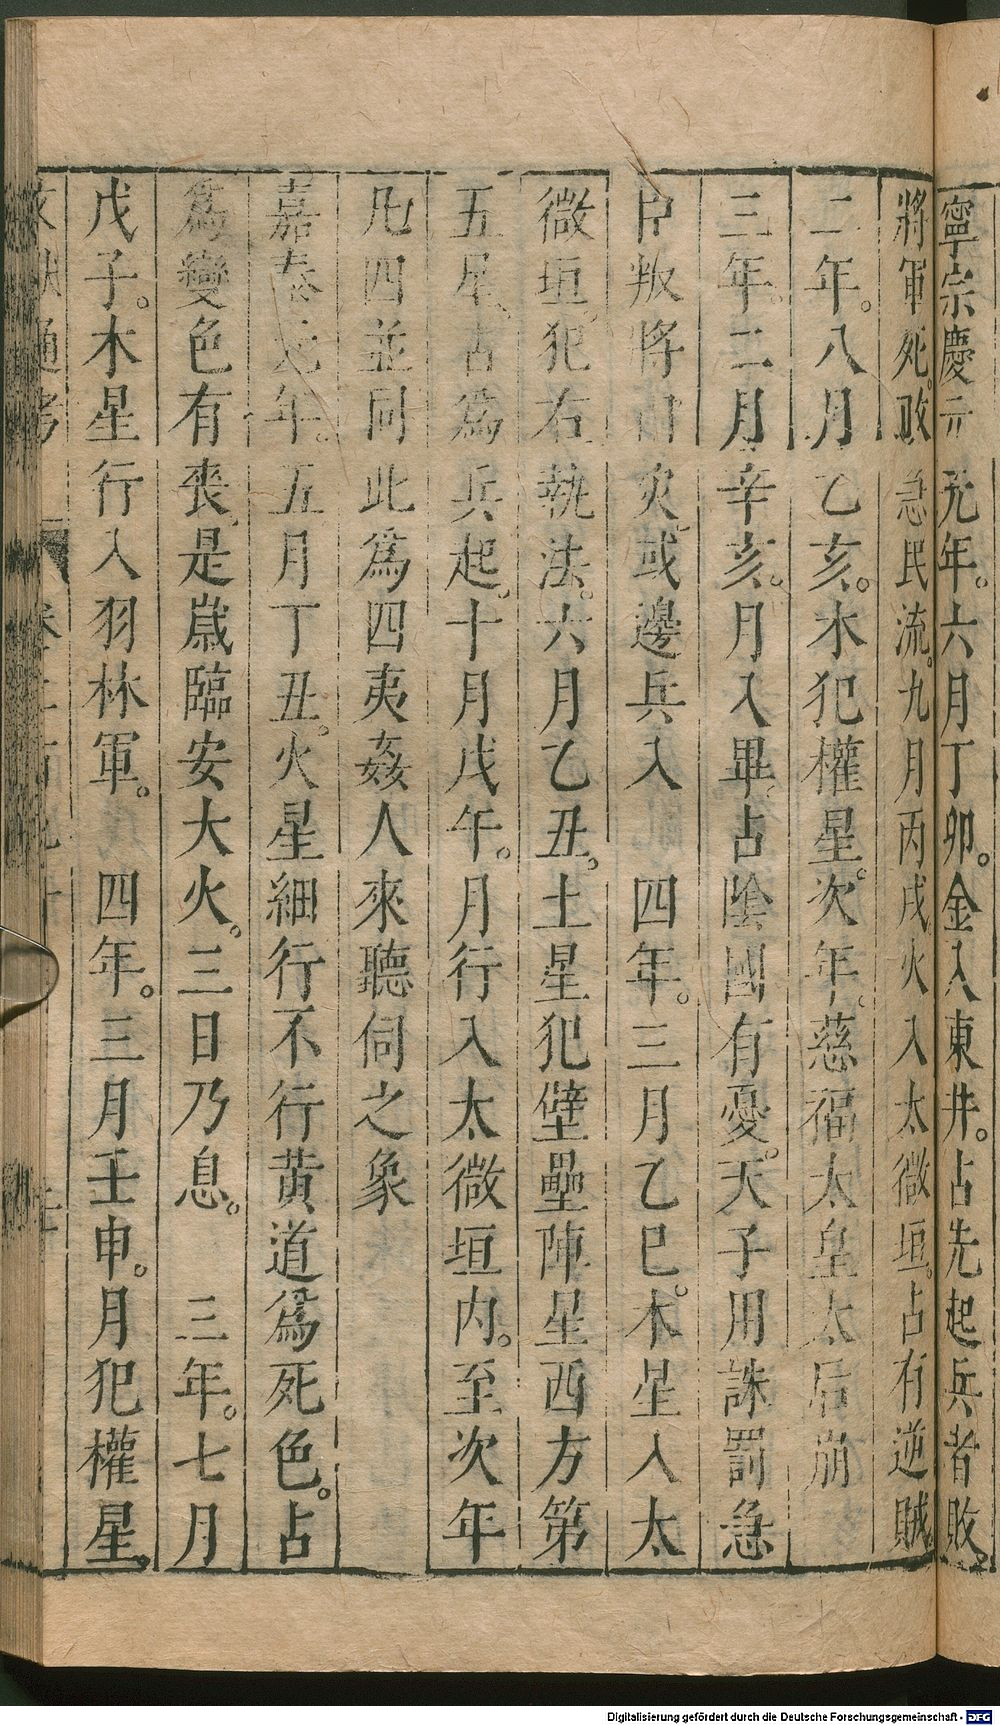 寧宗慶元元年。六月丁卯。金入東井。占先起兵者敗。
將軍死。敗急民流。九月丙戌火入太微垣。占有逆賊。
二年。八月乙亥。木犯權星。次年。慈福太皇太后崩
三年。二月辛亥。月入畢。占陰國有憂。天子用誅罰急
臣叛將占灾。或邊兵入 四年。三月乙巳。木星入太
微垣。犯右執法。六月乙丑。土星犯壁壘陣星西方第
五星。占爲兵起。十月戊午。月行入太微垣内。至次年
凡四並同此爲四夷姦人來聽伺之象
嘉泰元年。五月丁丑。火星細行不行黄道爲死色。占
爲變色有喪。是歲臨安大火。三日乃息。 三年。七月
戊子。木星行入羽林軍。 四年。三月壬申。月犯權星。
文獻通考
Digitalisierung gefördert durch die Deutsche Forschungsgemeinschaft - DFG